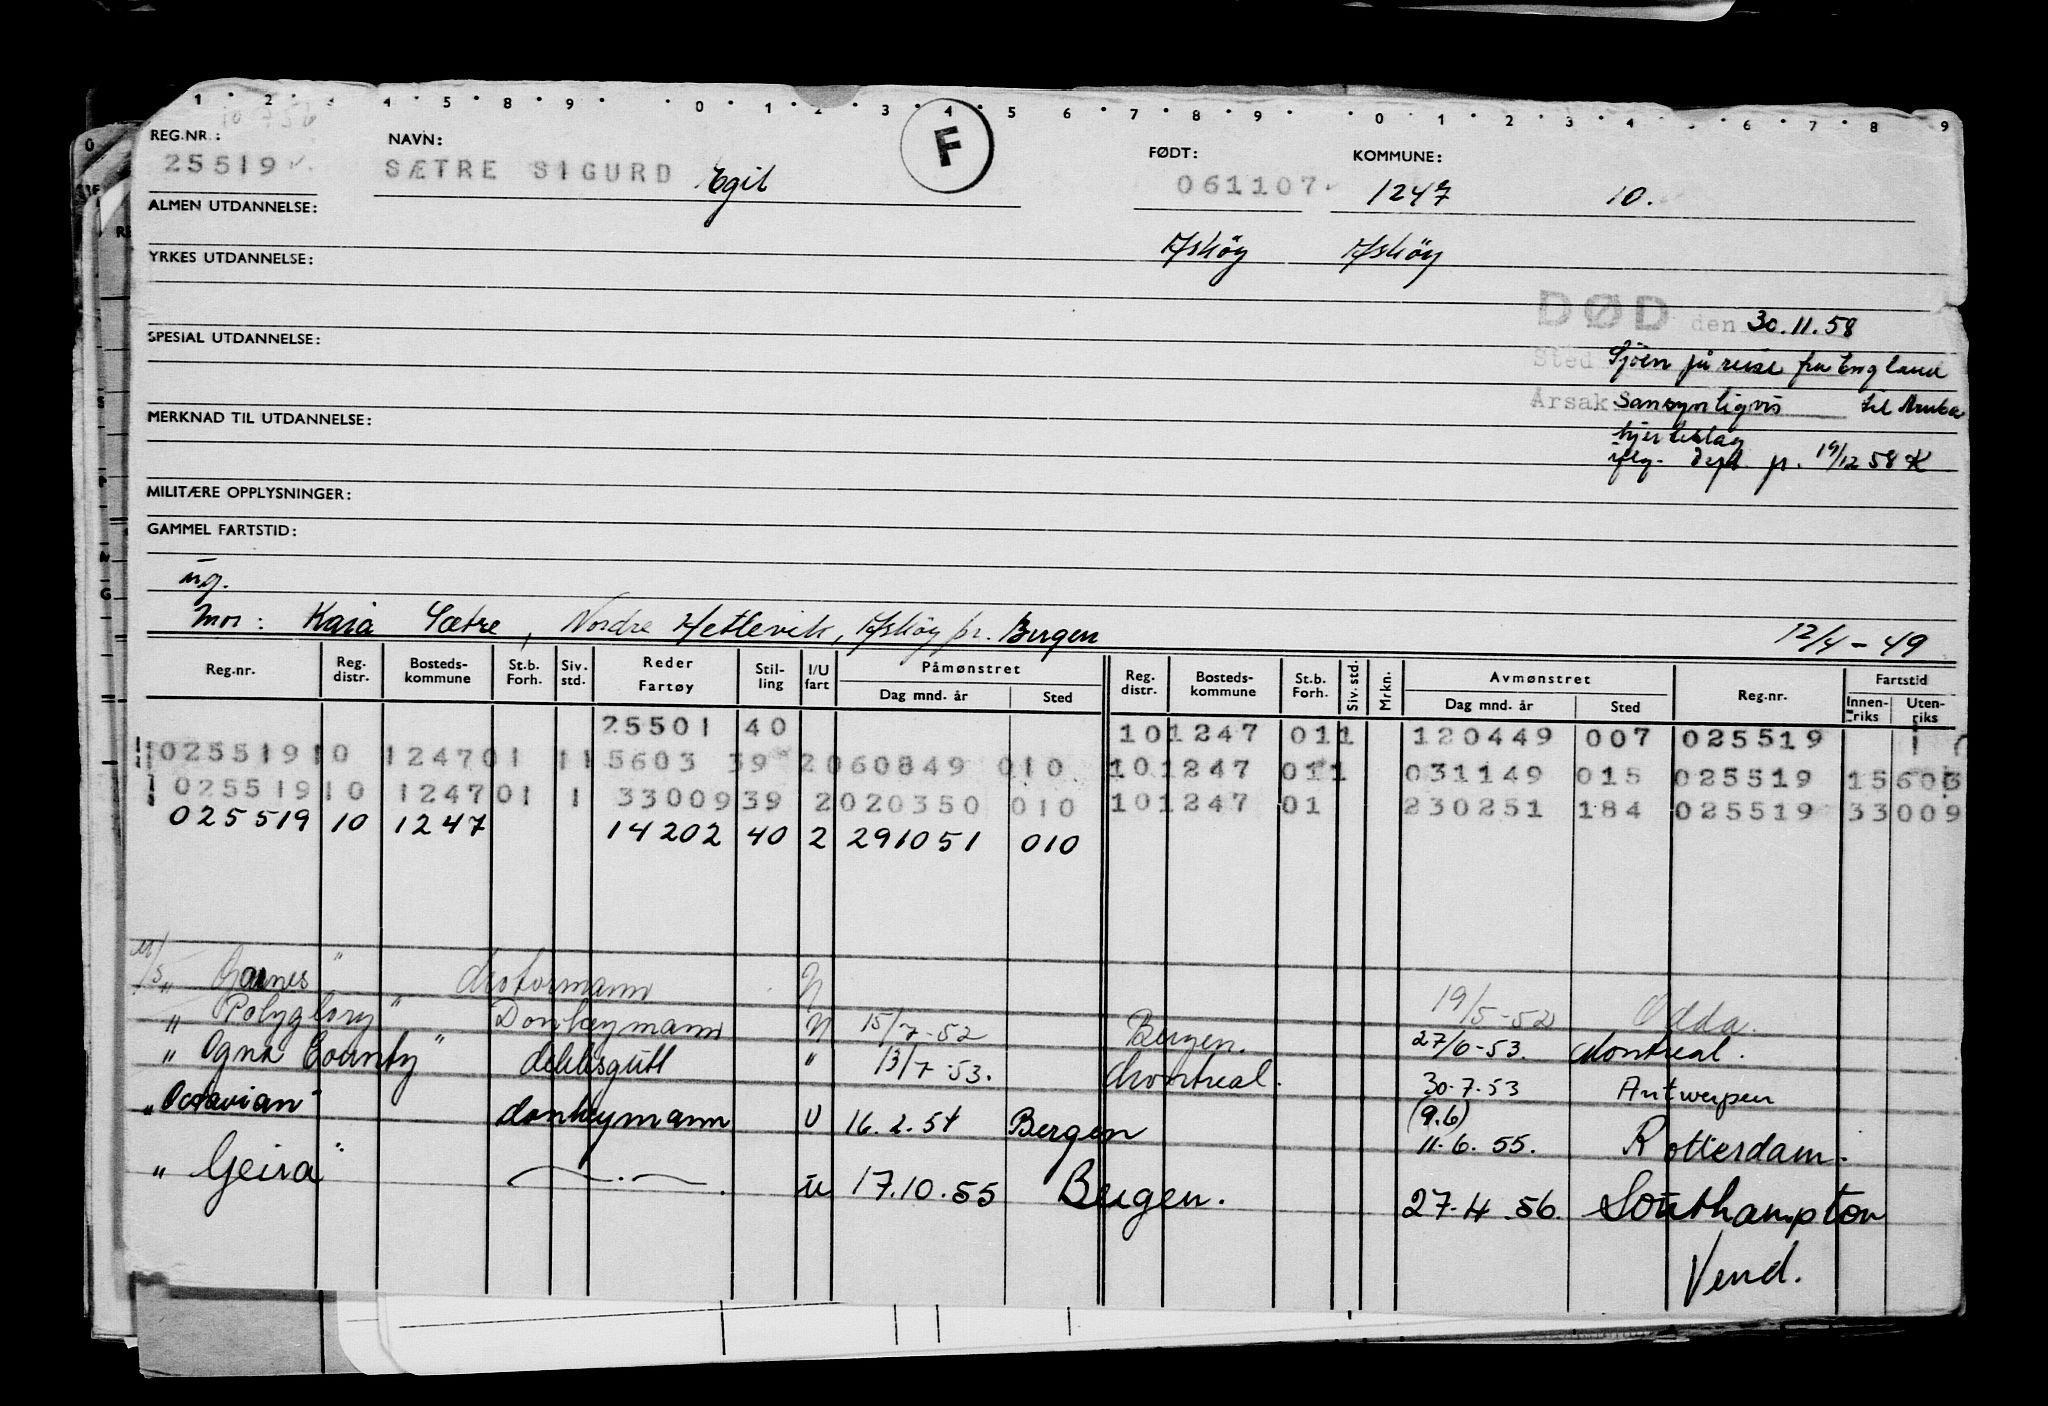 1 2 3 4 5 8 9 0 1 2 3 4 5 6 7 8 9 0 1 2 3 4 6 7 8 9
REG.NR.: NAVN: F FØDT: KOMMUNE:
25519 SÆTRE SIGURD Egil 061107 1247 10.
ALMEN UTDANNELSE:
Askøy Askøy
YRKES UTDANNELSE:
DØD den 30.11.58
SPESIAL UTDANNELSE:
Sted Sjöen på reise fra England
Årsak Sansynligvis til Aruba
MERKNAD TIL UTDANNELSE:
hjerteslag
iflg. 19/12 58 K
MILITÆRE OPPLYSNINGER:
GAMMEL FARTSTID:
ug.
Mor: Kaia Sætre, Nordre Hetlevik, Askøy pr. Bergen 12/4-49
Reg.nr. Reg. distr. Bosteds-kommune St.b. Forh. Siv. std. Reder Fartøy Stil-ling I/U fart Påmønstret Dag mnd. år Sted Reg. distr. Bosteds-kommune St.b. Forh. Siv. std. Mrkn. Avmønstret Dag mnd. år Sted Reg.nr. Fartstid Innen-riks Uten-riks
25501 40 10 1247 01 1 120449 007 025519
025519 10 1247 01 1 15603 39 2 060849 010 10 1247 01 1 031149 015 025519 15603
025519 10 1247 01 1 33009 39 2 020350 010 10 1247 01 230251 184 025519 33009
025519 10 1247 14202 40 2 291051 010
M/S " Garnes " Motormann U 19/5-52 Odda.
" Polyglory " Donkeymann U 15/7-52 Bergen. 27/6-53. Montreal.
" Ogna County " dekksgutt " 13/7-53. Montreal. 30.7.53 Antwerpen
" Octavian " donkeymann U 16.2.54 Bergen (9.6) 11.6.55. Rotterdam.
" Geira " —"— u 17.10.55 Bergen. 27.4.56. Southampton
Vend.